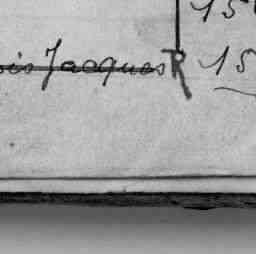 15
is Jacques R 15